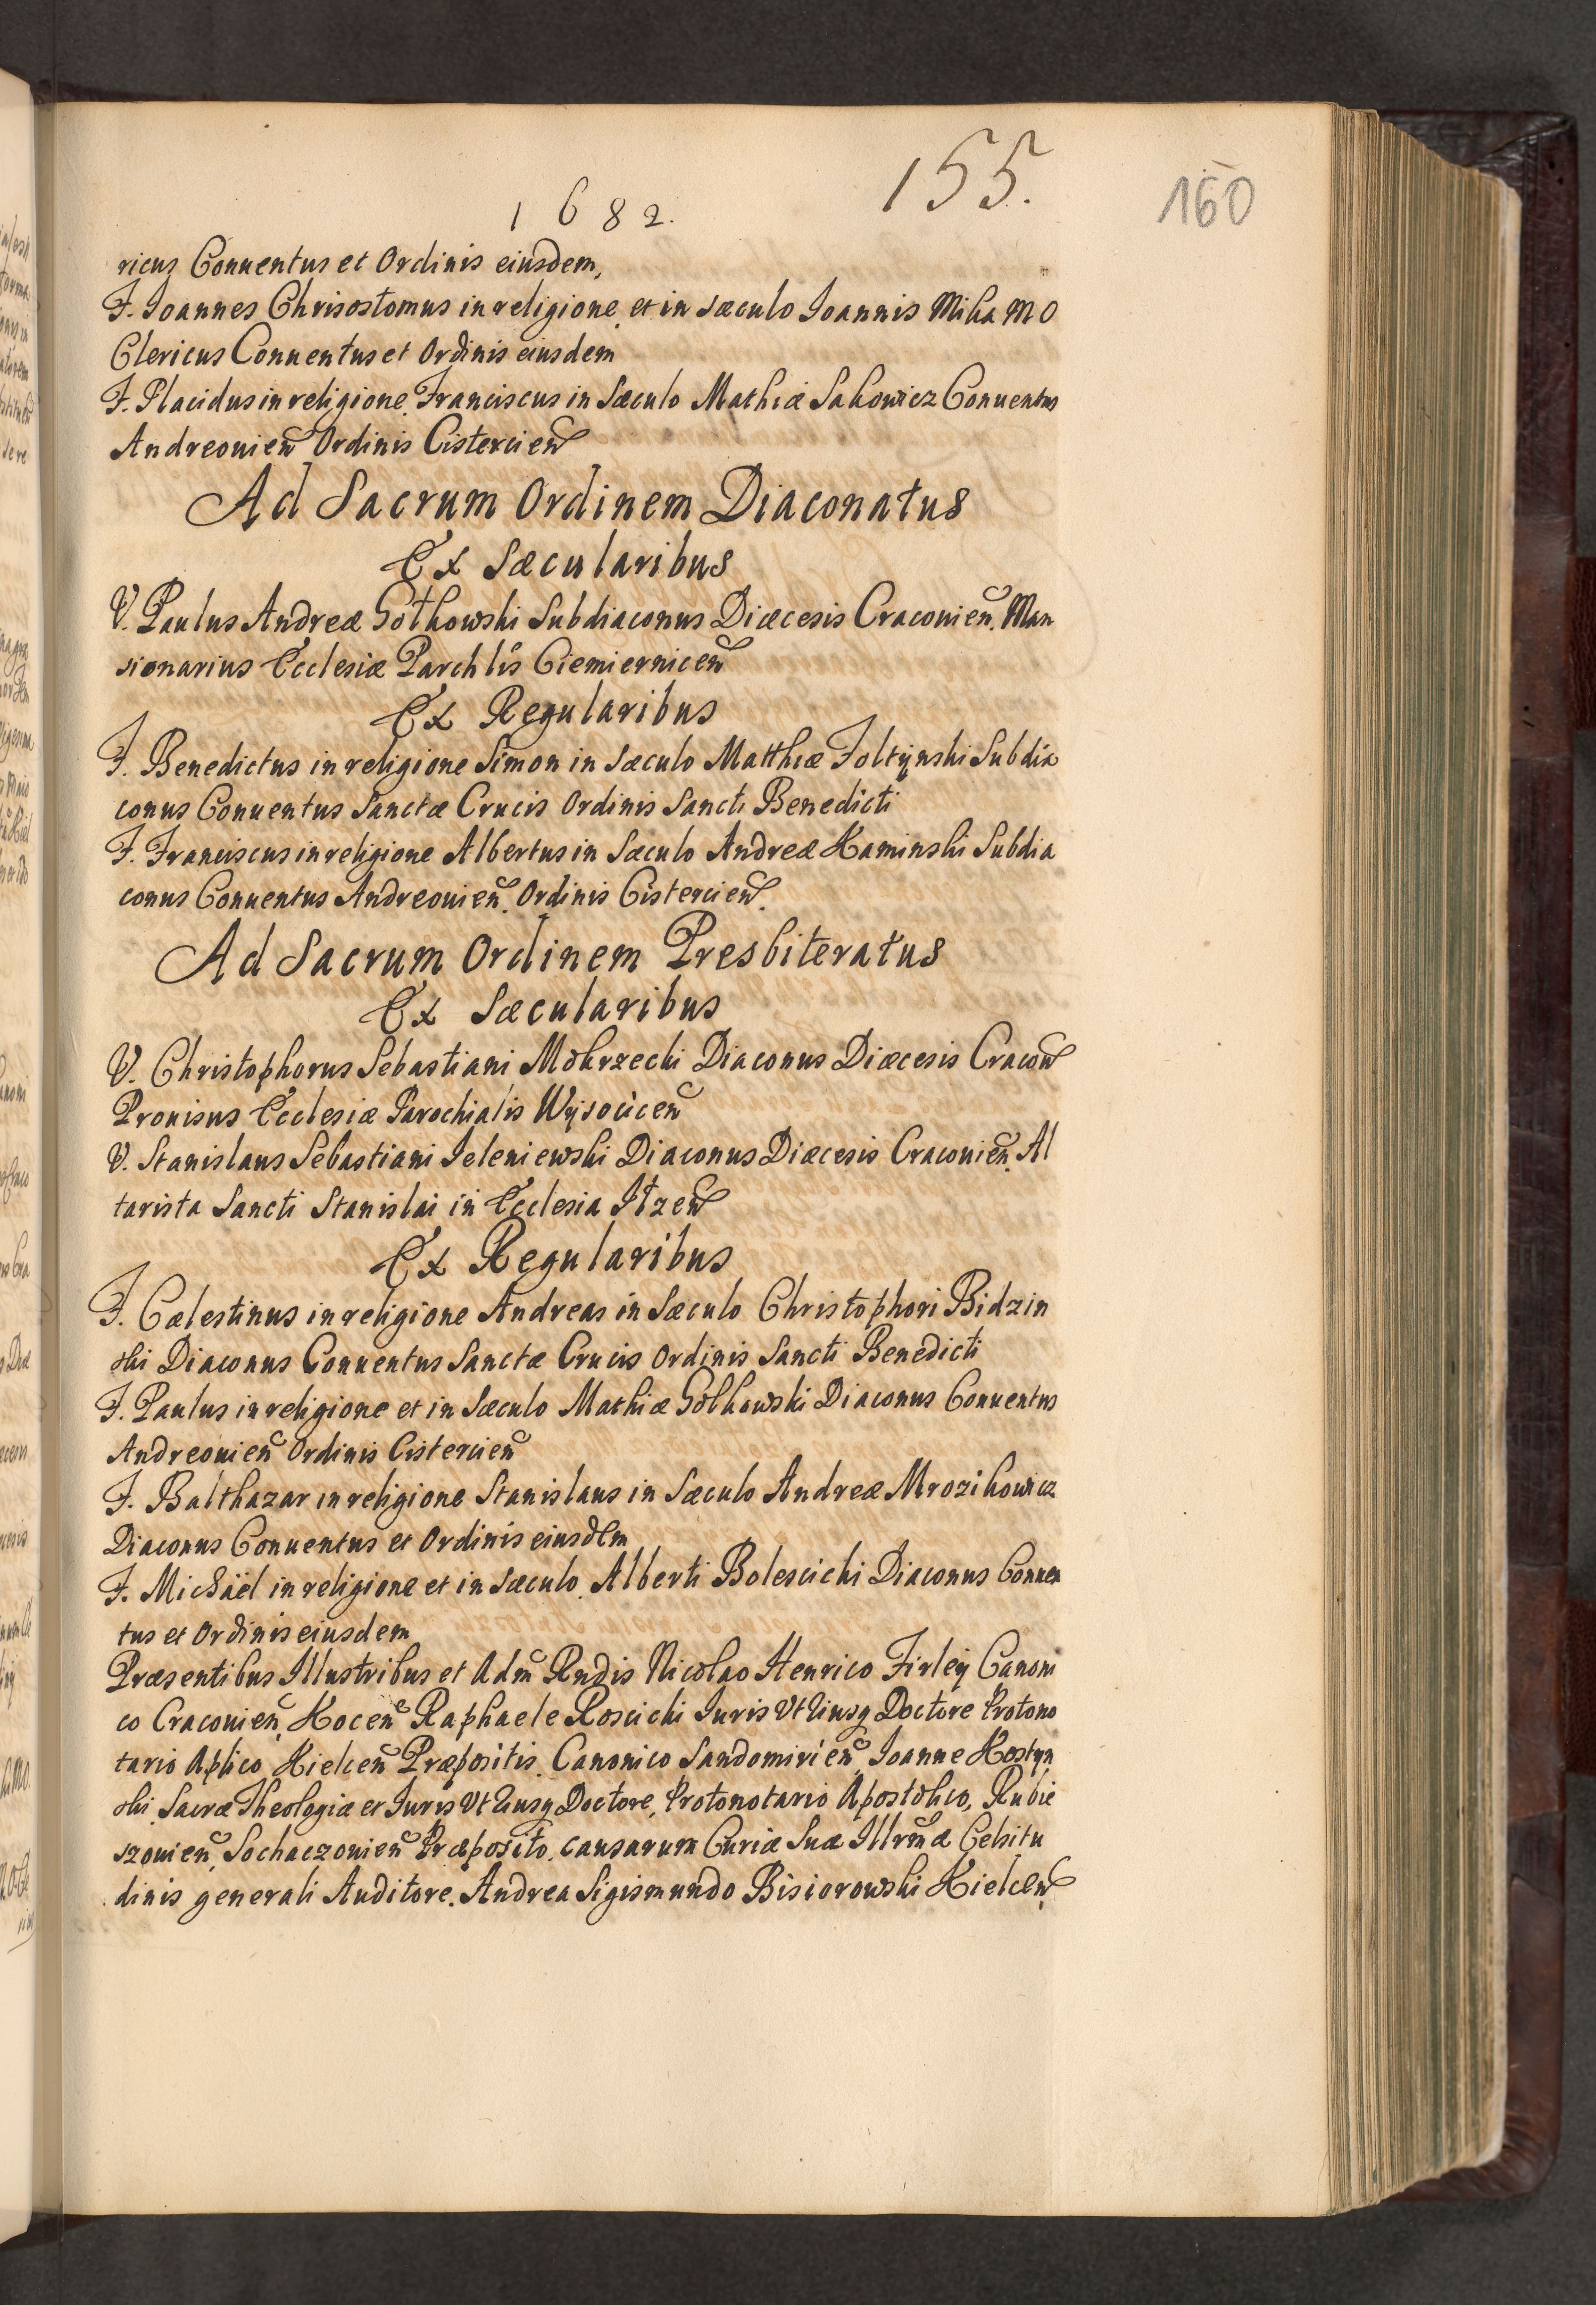 155.
160
1682.
ricus Conuentus et Ordinis eiusdem,
F. Ioannes Chrisostomus in religione et in sæculo Ioannis Mika M O
Clericus Conuentus et Ordinis eiusdem
F. Placidus in religione Franciscus in Sæculo Mathiæ Sakowicz Conuentus
Andreouien̄ Ordinis Cistercien̄
Ad Sacrum Ordinem Diaconatus
Ex Sæcularibus
V. Paulus Andreæ Gołkowski Subdiaconus Diæcesis Cracouien̄. Man
sionarius Ecclesiæ Parchlis Ciemiernicen̄
Ex Regularibus
F. Benedictus in religione Simon in sæculo Matthiæ Foltynski Subdia
conus Conuentus Sanctæ Crucis Ordinis Sancti Benedicti
F. Franciscus in religione Albertus in Sæculo Andreæ Kaminski Subdia
conus Conuentus Andreouien̄. Ordinis Cistercien̄.
Ad Sacrum Ordinem Presbiteratus
Ex Sæcularibus
V. Christophorus Sebastiani Mokrzecki Diaconus Diæcesis Cracou̅
Prouisus Ecclesiæ Parochialis Wysocicen̄
V. Stanislaus Sebastiani Ieleniewski Diaconus Diæcesis Cracouien̄. Al
tarista Sancti Stanislai in Ecclesia Iłzen̄
Ex Regularibus
F. Cælestinus in religione Andreas in Sæculo Christophori Bidzin
ski Diaconus Conuentus Sanctæ Crucis Ordinis Sancti Benedicti
F. Paulus in religione et in Sæculo Mathiæ Gołkowski Diaconus Conuentus
Andreouien̄ Ordinis Cistercien̄
F. Balthazar in religione Stanislaus in Sæculo Andreæ Mrozikowicz
Diaconus Conuentus et Ordinis eiusdem
F. Michaël in religione et in sæculo Alberti Bolescicki Diaconus Conuen
tus et Ordinis eiusdem
Præsentibus Illustribus et Adm̄ Rndis Nicolao Henrico Firley Canoni
co Cracouien̄, Kocen̄ Raphaele Roscicki Iuris Vtriusq Doctore Protono
tario Aplico Kielcen̄ Præpositis. Canonico Sandomirien̄, Ioanne Kostyn
ski Sacræ Theologiæ et Iuris Vtriusq Doctore, Protonotario Apostolico, Rubie
szouien̄, Sochaczouien̄ Præposito, causarum Curiæ Suæ Illrm̄æ Celsitu
dinis generali Auditore. Andrea Sigismundo Bisiorowski Kielcen̄